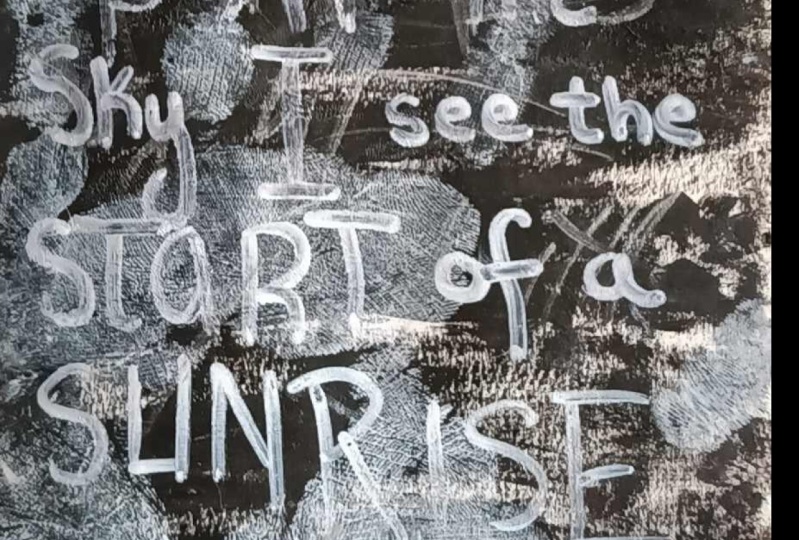 Sky I see the
START of a
SUNRISE